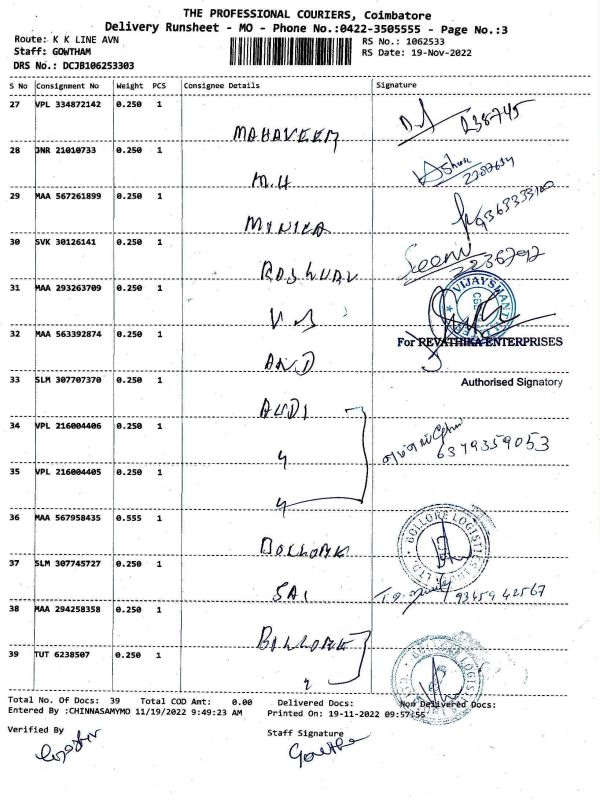 THE PROFESSIONAL COURIERS, Coimbatore
Delivery Runsheet - MO - Phone No.:0422-3505555 - Page No.:3
Route: K K LINE AVN
RS No.: 1062533
Staff: GOWTHAM
RS Date: 19-Nov-2022
DRS No.: DCJB106253303
S No Consignment No Weight PCS Consignee Details Signature
27 VPL 334872142 0.250 1
MAHAVEER 238745
28 JNR 21010733 0.250 1
M.H
29 MAA 567261899 0.250 1
30 SVK 30126141 0.250 1
31 MAA 293263709 0.250 1
VIJAYSHANTHI
32 MAA 563392874 0.250 1
For REVATHIKA ENTERPRISES
AND
33 SLM 307707370 0.250 1
Authorised Signatory
AUDI
34 VPL 216004406 0.250 1
6379359053
35 VPL 216004405 0.250 1
36 MAA 567958435 0.555 1
BOLLORE LOGISTICS
37 SLM 307745727 0.250 1
SAI 93459 42567
38 MAA 294258358 0.250 1
39 TUT 6238507 0.250 1
BOLLORE LOGISTICS
Total No. Of Docs: 39 Total COD Amt: 0.00 Delivered Docs: Non Delivered Docs:
Entered By :CHINNASAMYMO 11/19/2022 9:49:23 AM Printed On: 19-11-2022 09:57:55
Verified By
Staff Signature